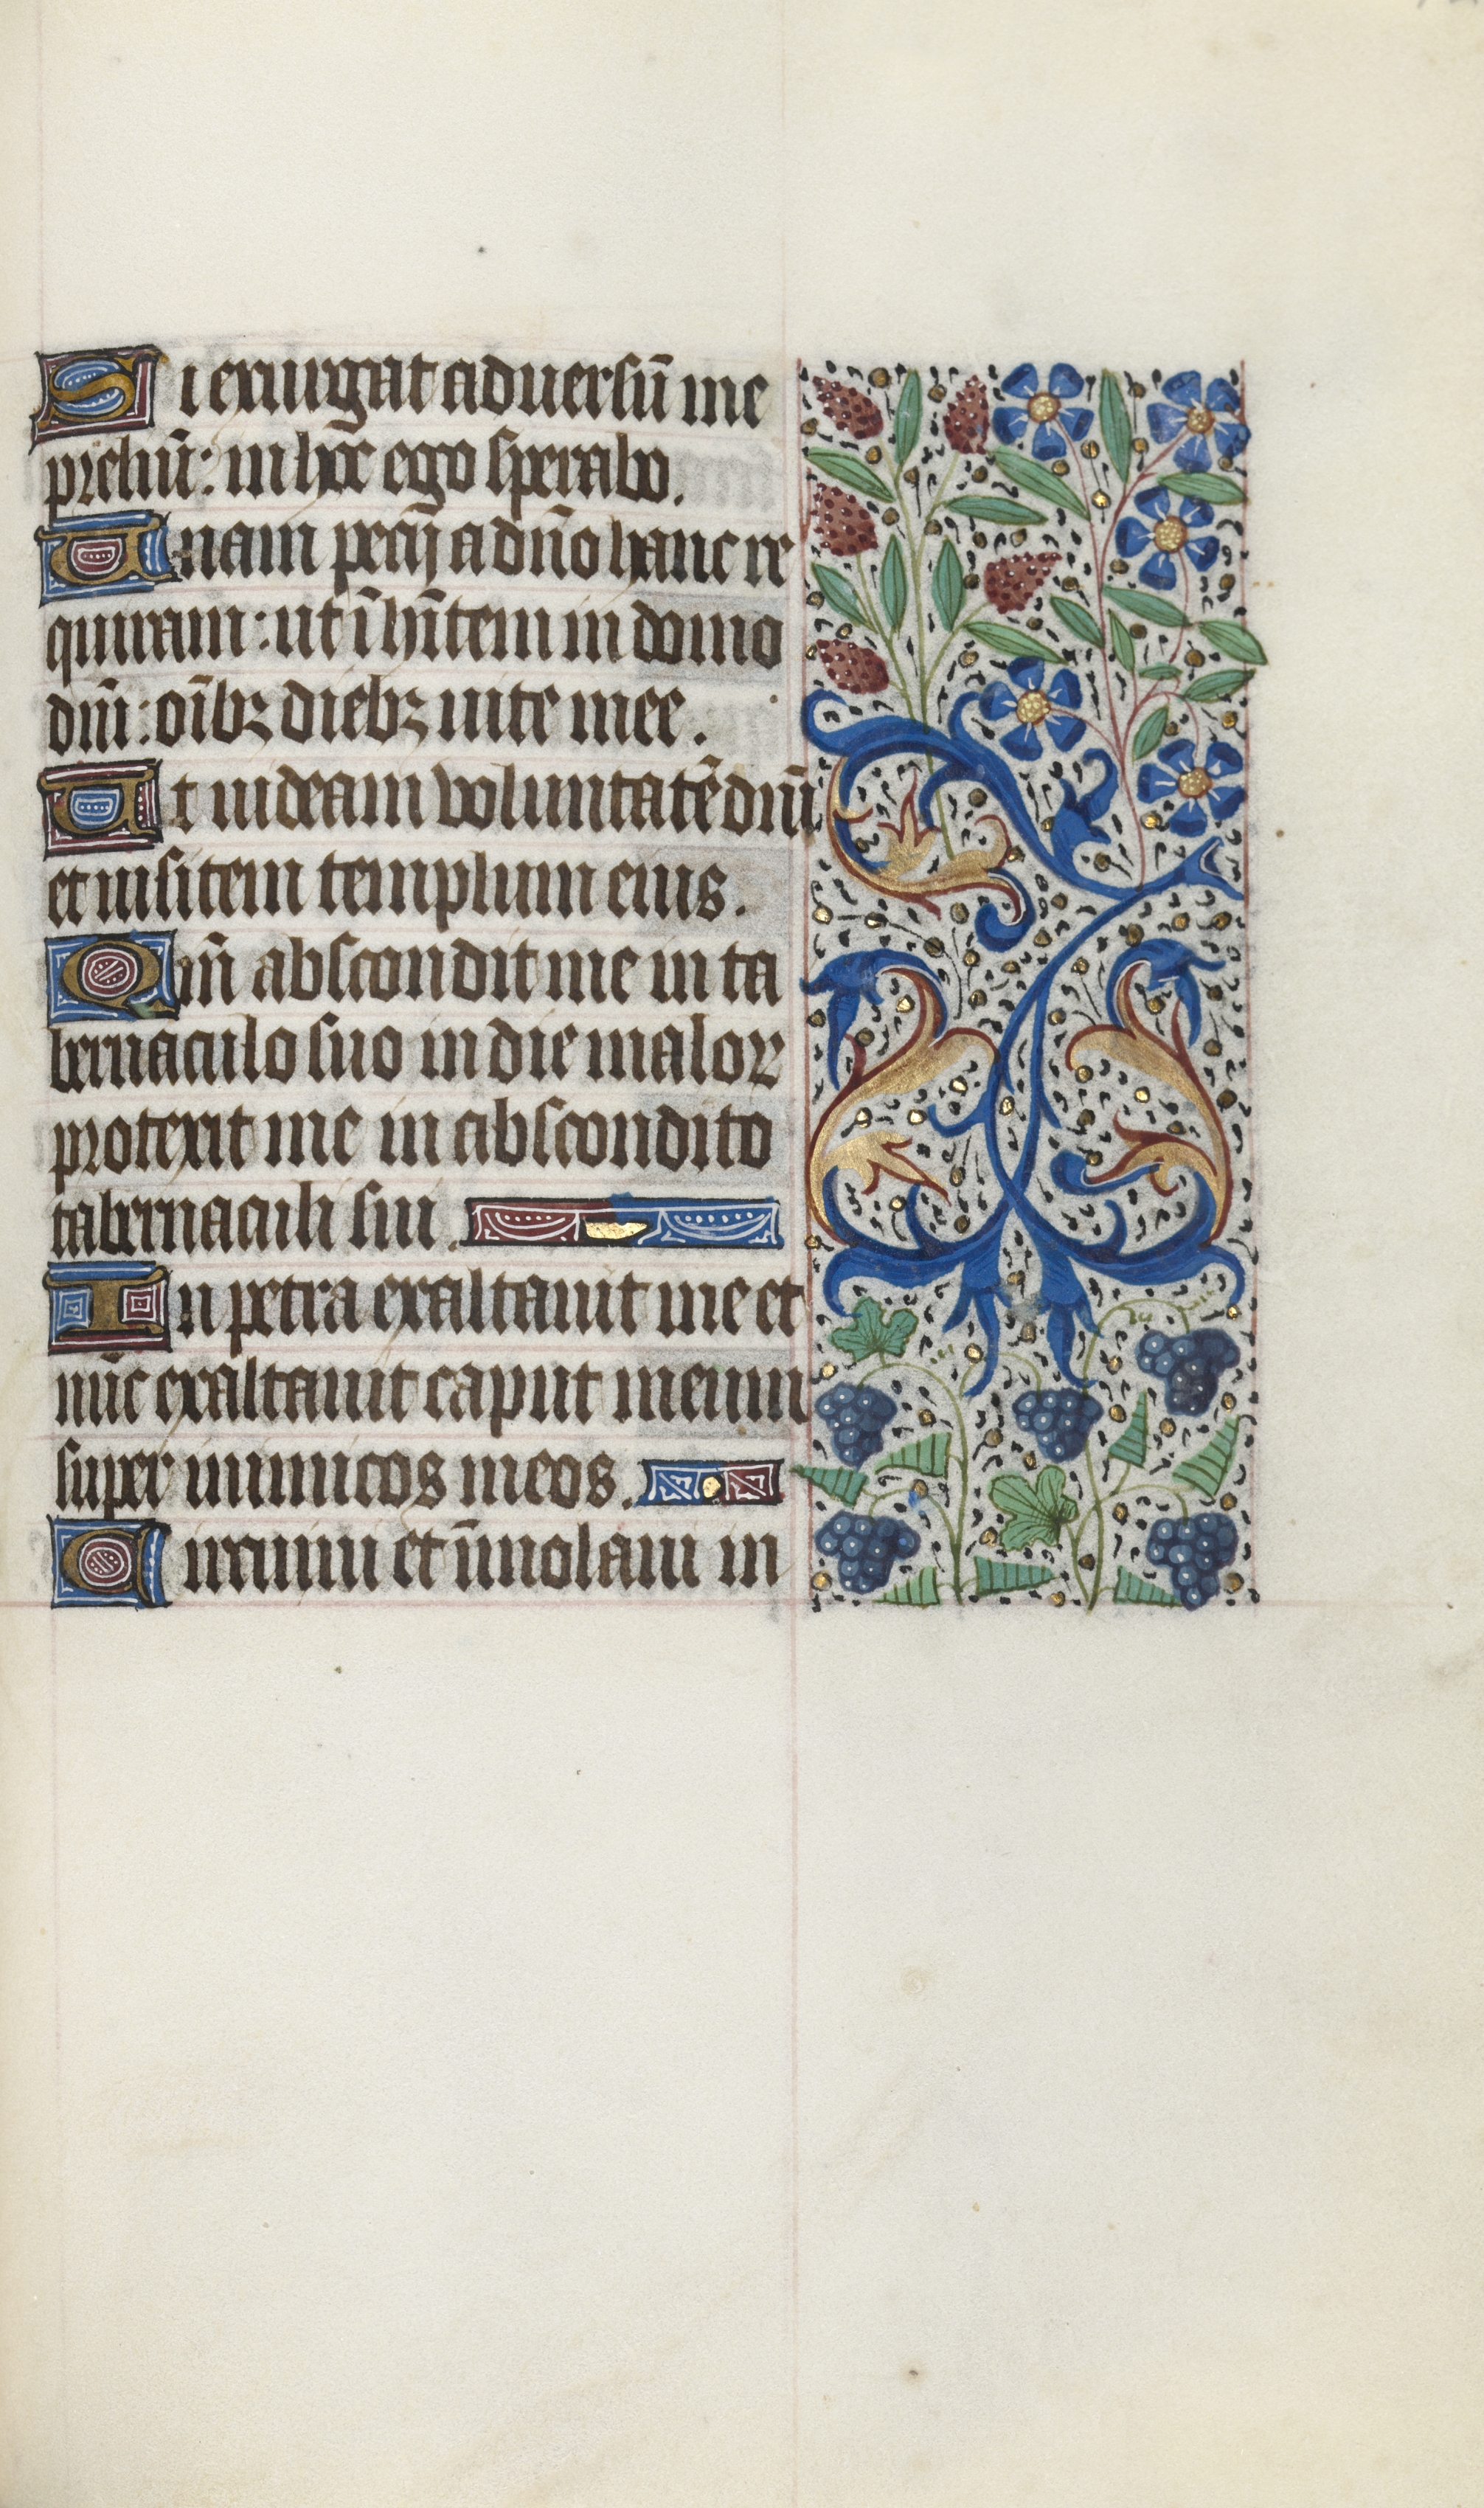 Si exurgat aduersū me
preliū: in hoc ego sperabo.
Unam pecij a dn̄o hanc re
quiram: ut īhītem in domo
dn̄i: oībꝫ diebꝫ uite mee.
Ut uideam voluntatē dn̄i
et uisitem templum eius.
Qm̄ abscondit me in ta
bernaculo suo in die maloꝝ
protexit me in abscondito
tabernaculi sui.
In petra exaltauit me et
nūc exaltauit caput meum
super inimicos meos.
Circuiui et īmolaui in